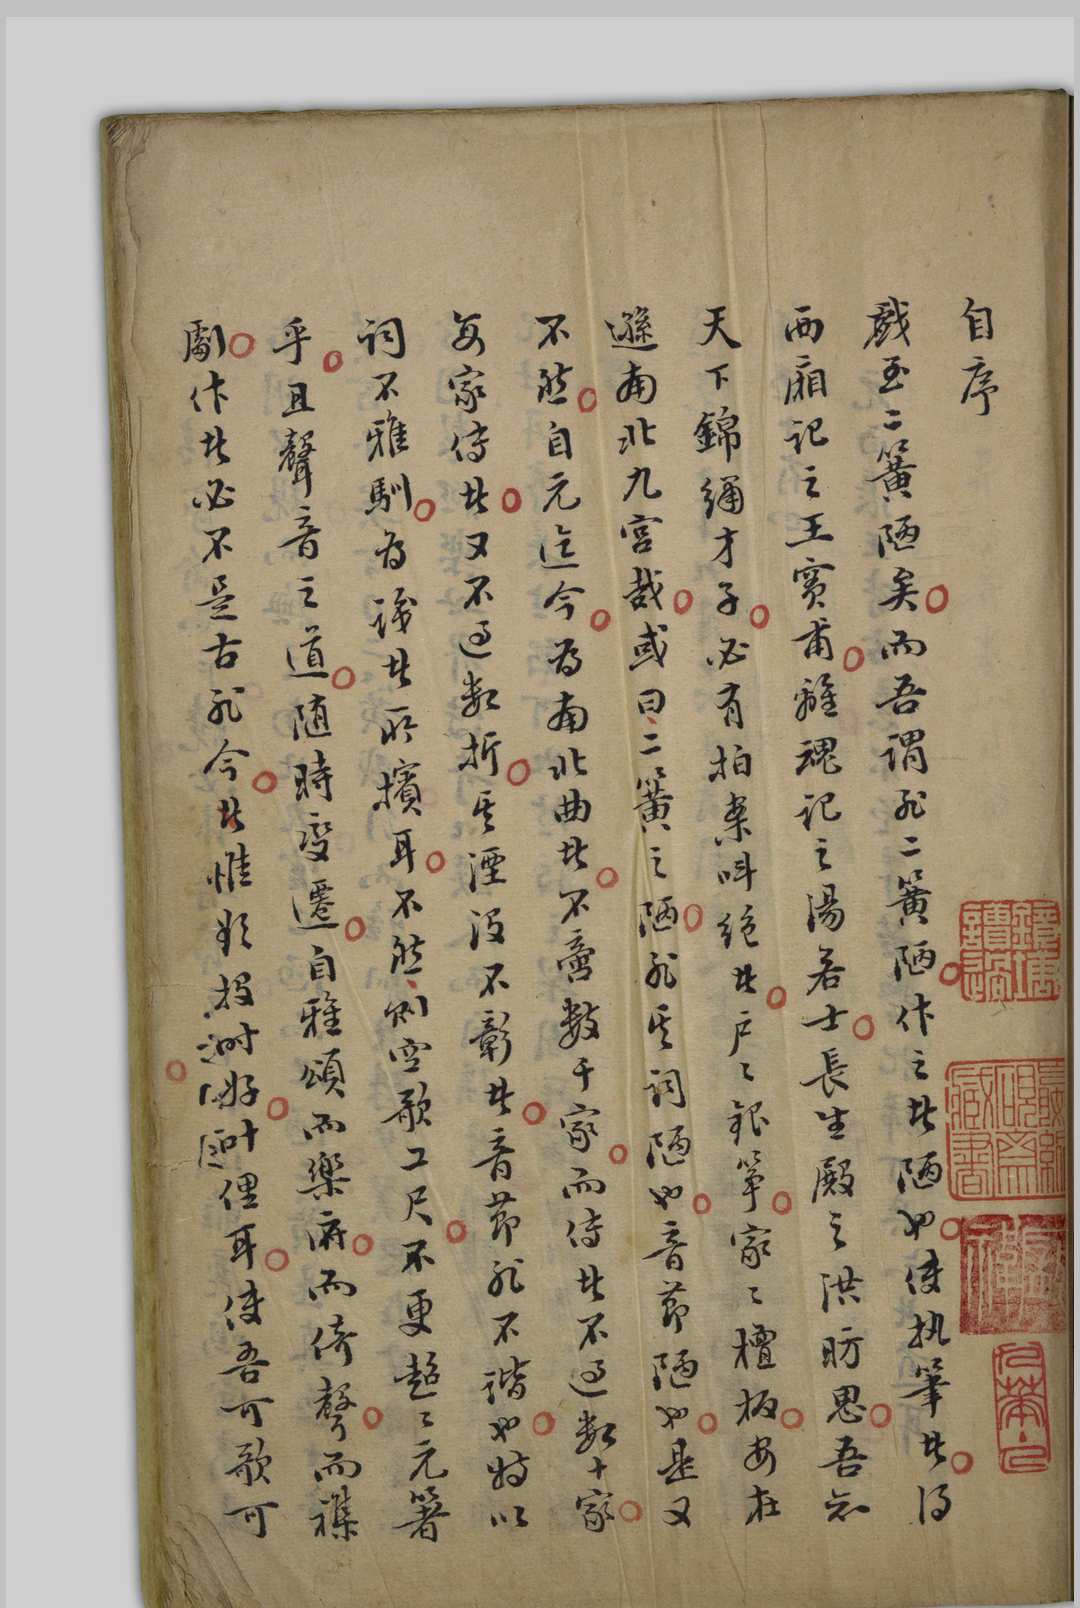 自序
戲至二簧陋矣而吾謂非二簧陋作之者陋也使执筆者得
西廂記之王實甫離魂記之湯若士長生殿之洪昉思吾知
天下錦繡才子必有拍案叫絶者戶〻銀箏家〻檀板安在
遜南北九宮哉或曰二簧之陋非其詞陋也音節陋也是又
不然自元迄今為南北曲者不啻數千家而傳者不過數十家
每家傳者又不過數折其湮没不彰者音節非不諧也特以
詞不雅馴為識者所擯耳不然則空歌工尺不更超〻元箸
乎且聲音之道随時变遷自雅頌而樂府而倚聲而襍
劇作者必不是古非今者惟欲投時好叶俚耳使吾可歌可